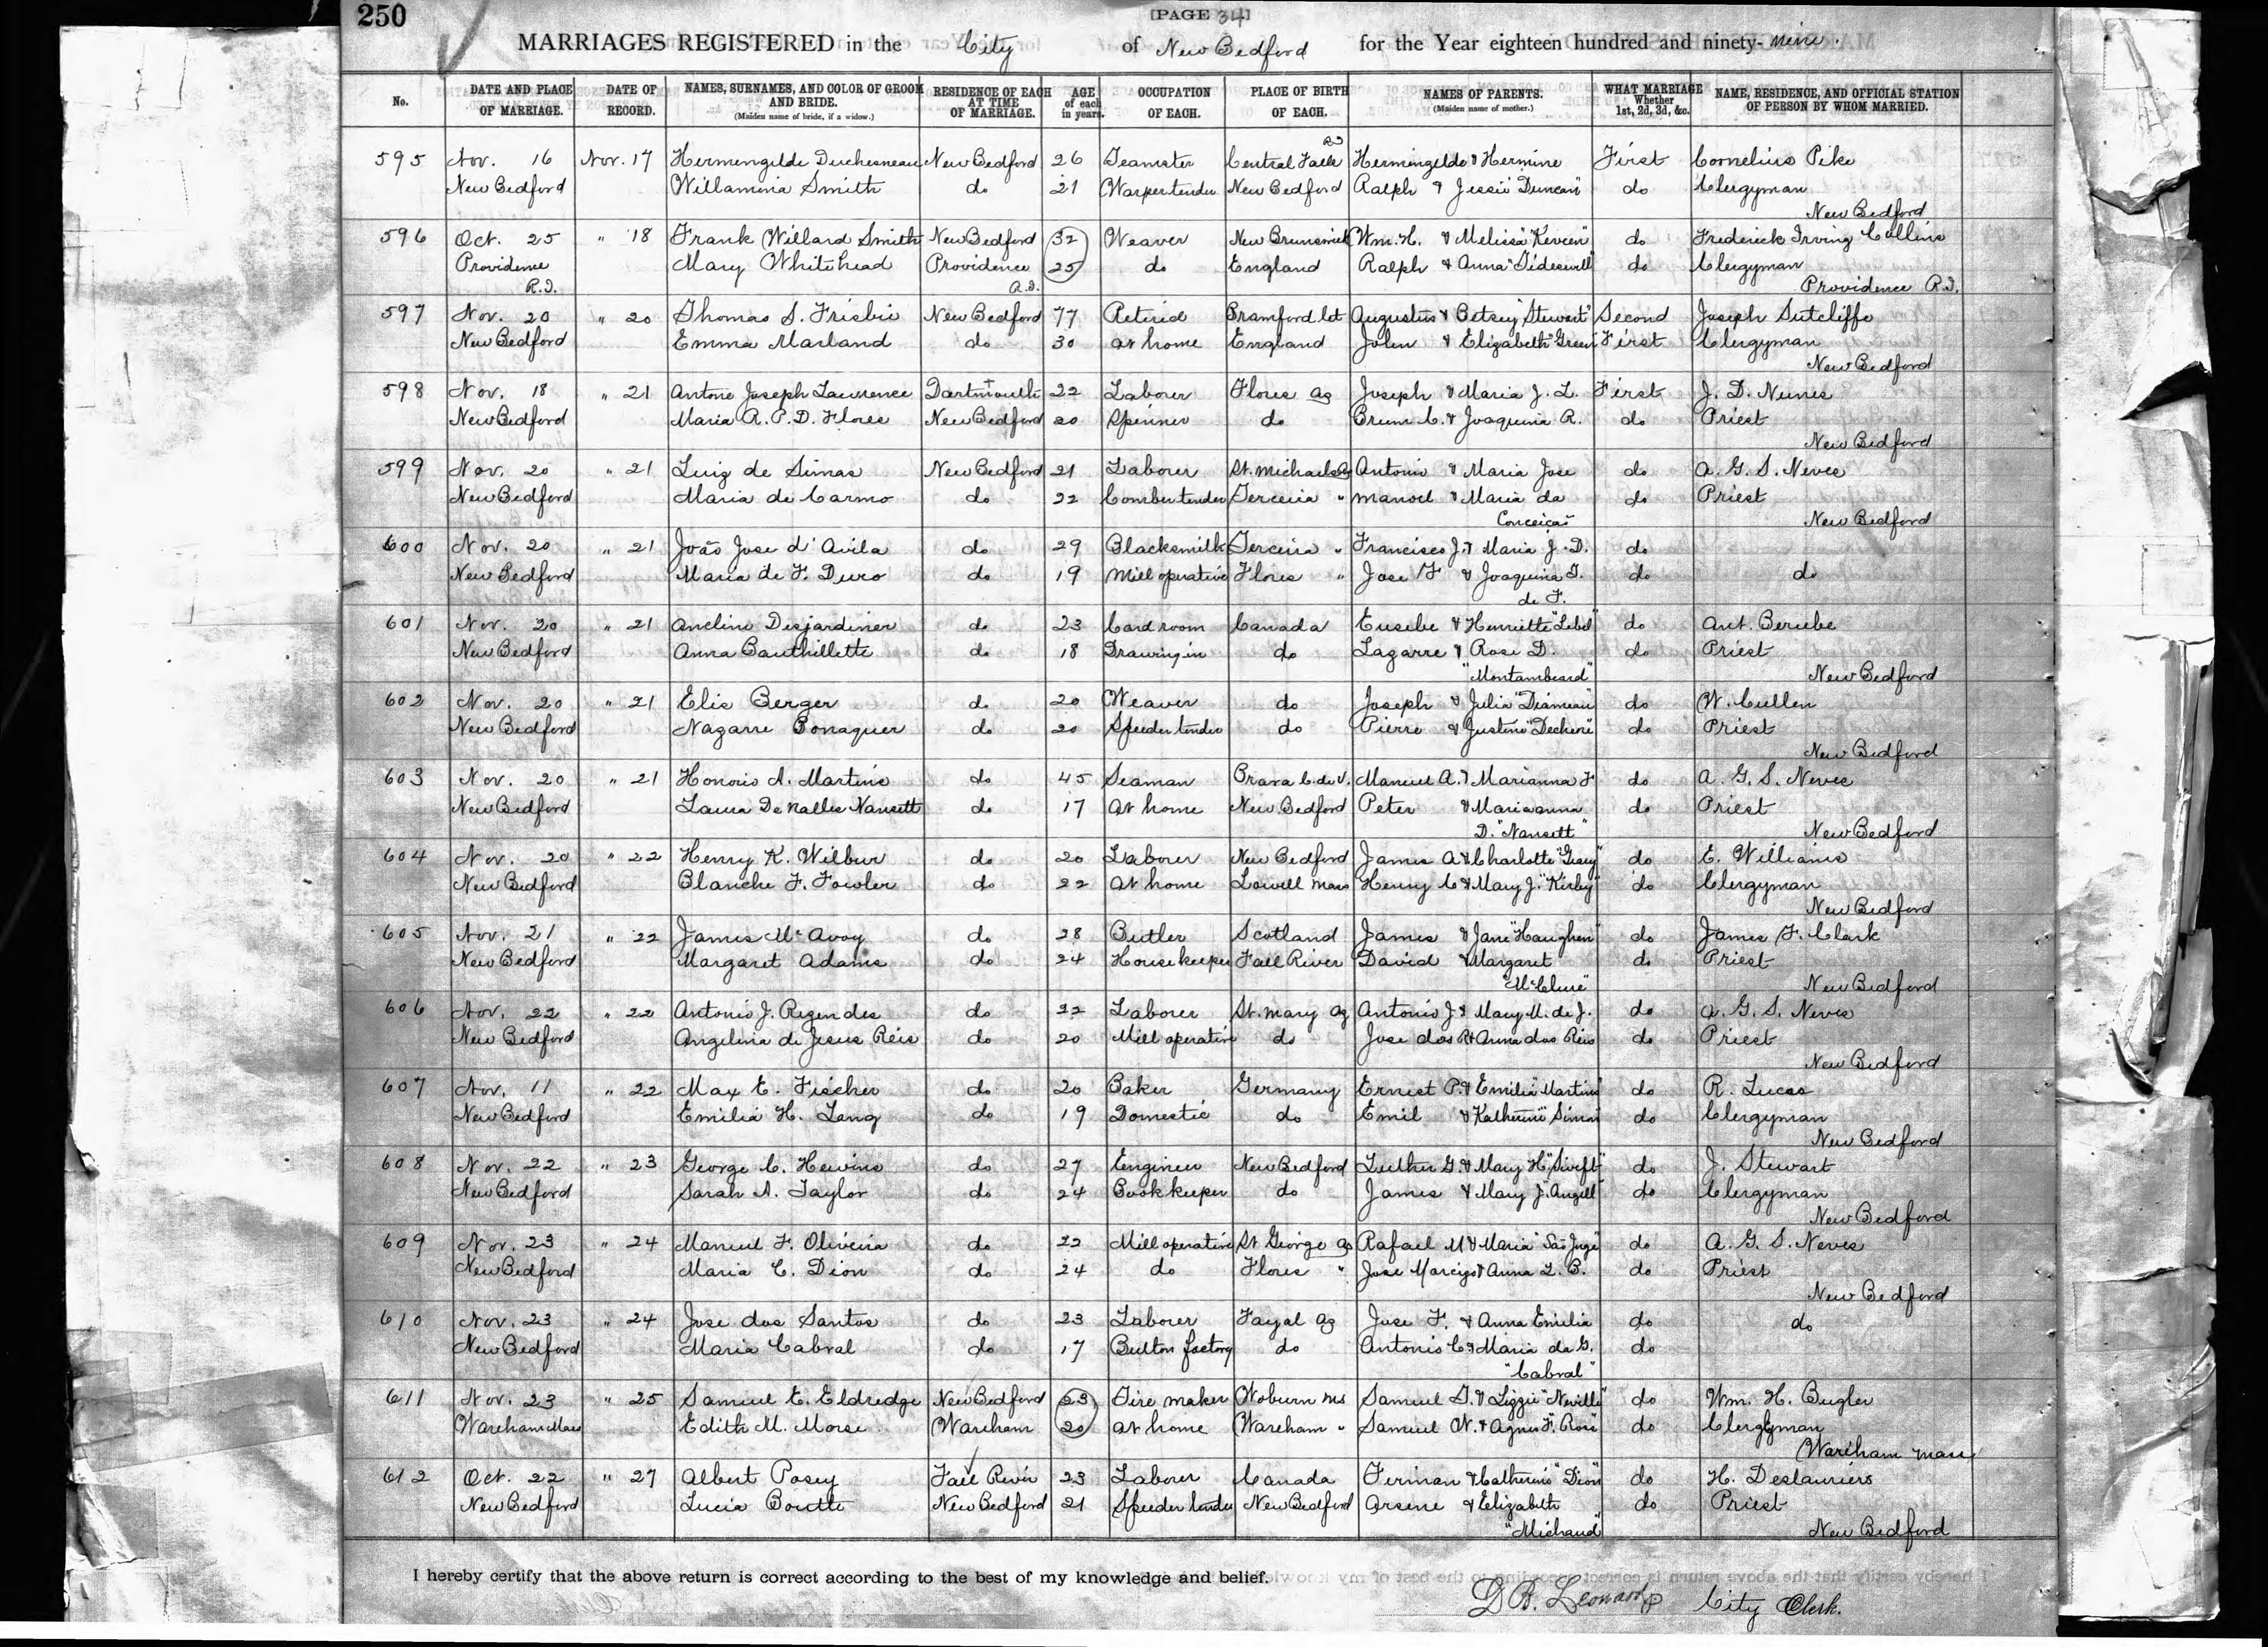 250
[PAGE 34]
MARRIAGES REGISTERED in the City of New Bedford for the Year eighteen hundred and ninety-nine.
No. DATE AND PLACE OF MARRIAGE. DATE OF RECORD. NAMES, SURNAMES, AND COLOR OF GROOM AND BRIDE. (Maiden name of bride, if a widow.) RESIDENCE OF EACH AT TIME OF MARRIAGE. AGE of each in years. OCCUPATION OF EACH. PLACE OF BIRTH OF EACH. NAMES OF PARENTS. (Maiden name of mother.) WHAT MARRIAGE Whether 1st, 2d, 3d, &c. NAME, RESIDENCE, AND OFFICIAL STATION OF PERSON BY WHOM MARRIED.
595 Nov. 16 Nov. 17 Hermengilde Duchesneau New Bedford 26 Teamster Central Falls R.I. Hermengilde & Hermine First Cornelius Pike
New Bedford Willamina Smith do 21 Warper tender New Bedford Ralph & Jessie "Duncan" do Clergyman
New Bedford
596 Oct. 25 " 18 Frank Willard Smith New Bedford 32 Weaver New Brunswick Wm. H. & Melissa do Frederick Irving Collins
Providence Mary Whitehead Providence 25 do England Ralph & Anna "Tideswell" do Clergyman
R.I. R.I. Providence R.I.
597 Nov. 20 " 20 Thomas S. Frisbie New Bedford 77 Retired Branford Ct Augustus & Betsey "Stewart" Second Joseph Sutcliffe
New Bedford Emma Marland do 30 At home England John & Elizabeth "Green" First Clergyman
New Bedford
598 Nov. 18 " 21 Antone Joseph Lawrence Dartmouth 22 Laborer Flores Az Joseph & Maria J. L. First J. D. Nunes
New Bedford Maria R. P. D. Flores New Bedford 20 Spinner do Brum C. & Joaquina R. do Priest
New Bedford
599 Nov. 20 " 21 Luiz de Simas New Bedford 21 Laborer St. Michaels Az Antonio & Maria Jose do A. G. S. Neves
New Bedford Maria de Carmo do 22 Comber tender Terceira " Manoel & Maria da do Priest
Conceição New Bedford
600 Nov. 20 " 21 João Jose d'Avila do 29 Blacksmith Terceira " Francisco J. & Maria J. D. do
New Bedford Maria de F. Duro do 19 Mill operative Flores " Jose F & Joaquina T. do do
de F.
601 Nov. 20 " 21 Ancline Desjardiner do 23 Card room Canada Eusebe & Henriette "Lebel" do Ant. Berube
New Bedford Anna Bauthillette do 18 Drawing in do Lazarre & Rose D. do Priest
"Montambeard" New Bedford
602 Nov. 20 " 21 Elie Berger do 20 Weaver do Joseph & Julia do W. Cullen
New Bedford Nazarre Bonaquer do 20 Speeder tender do Pierre & Justine "Dechene" do Priest
New Bedford
603 Nov. 20 " 21 Honorio A. Martins do 45 Seaman Brava C. de V. Manuel A. & Marianna F do A. G. S. Neves
New Bedford Laura De Valles Nansett do 17 At home New Bedford Peter & Marianna do Priest
D. "Nansett" New Bedford
604 Nov. 20 " 22 Henry K. Wilbur do 20 Laborer New Bedford James A & Charlotte "Gray" do E. Williams
New Bedford Blanche F. Fowler do 22 At home Lowell Mass Henry C & Mary J. "Kirby" do Clergyman
New Bedford
605 Nov. 21 " 22 James McAvoy do 28 Butler Scotland James & Jane "Haughen" do James F. Clark
New Bedford Margaret Adams do 24 Housekeeper Fall River David & Margaret do Priest
"McClure" New Bedford
606 Nov. 22 " 22 Antonio J. Rezendes do 22 Laborer St. Mary Az Antonio J. & Mary M. de J. do A. G. S. Neves
New Bedford Angelina de Jesus Reis do 20 Mill operative do Jose dos R & Anna dos Reis do Priest
New Bedford
607 Nov. 11 " 22 Max E. Fischer do 20 Baker Germany Ernest P. & Emilie "Martins" do R. Lucas
New Bedford Emilia H. Lang do 19 Domestic do Emil & Katherine "Simon" do Clergyman
New Bedford
608 Nov. 22 " 23 George C. Hewins do 27 Engineer New Bedford Luther G. & Mary H. "Swift" do J. Stewart
New Bedford Sarah A. Taylor do 24 Bookkeeper do James & Mary J. "Angell" do Clergyman
New Bedford
609 Nov. 23 " 24 Manuel F. Oliveira do 22 Mill operative St George Az Rafael M & Maria "São Jorge" do A. G. S. Neves
New Bedford Maria C. Dion do 24 do Flores " Jose & Anna L. B. do Priest
New Bedford
610 Nov. 23 " 24 Jose dos Santos do 23 Laborer Fayal Az Jose F. & Anna Emilia do do
New Bedford Maria Cabral do 17 Button factory do Antonio C & Maria da G. do
"Cabral"
611 Nov. 23 " 25 Samuel E. Eldredge New Bedford 23 Tire maker Woburn Ms Samuel T. & Lizzie "Neville" do Wm. H. Bugler
Wareham Mass Edith M. Morse Wareham 20 At home Wareham " Samuel W. & Agnes F. "Ross" do Clergyman
Wareham Mass
612 Oct. 22 " 27 Albert Posey Fall River 23 Laborer Canada Firman & Catherine "Dion" do H. Deslauriers
New Bedford Lucia Boutte New Bedford 21 Speeder tender New Bedford Arsene & Elizabeth do Priest
"Michaud" New Bedford
I hereby certify that the above return is correct according to the best of my knowledge and belief.
D. B. Leonard City Clerk.